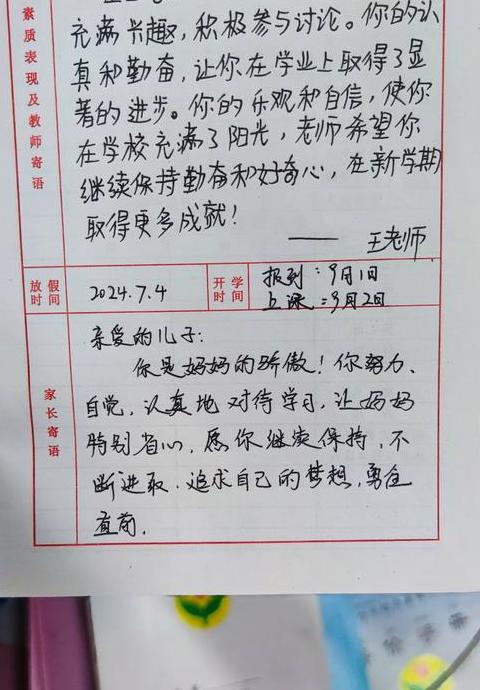 充满兴趣，积极参与讨论。你的认
真和勤奋，让你在学业上取得了显
著的进步。你的乐观和自信，使你
在学校充满了阳光，老师希望你
继续保持勤奋和好奇心，在新学期
取得更多成就！
—— 王老师
素质表现及教师寄语
放假时间
2024.7.4
开学时间
报到：9月1日
上课：9月2日
家长寄语
亲爱的儿子：
你是妈妈的骄傲！你努力、
自觉，认真地对待学习，让妈妈
特别省心，愿你继续保持，不
断进取、追求自己的梦想，勇往
直前。